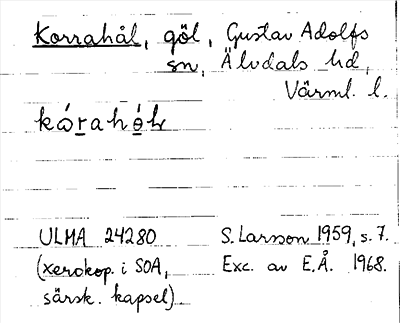 Korrahål, göl, Gustav Adolfs
sn, Älvdals hd,
Värml. l.
kǻrahóḷ
ULMA 24280 S. Larsson 1959, s. 7.
(xerokop. i SOA, Exc. av E.Å. 1968.
särsk. kapsel)